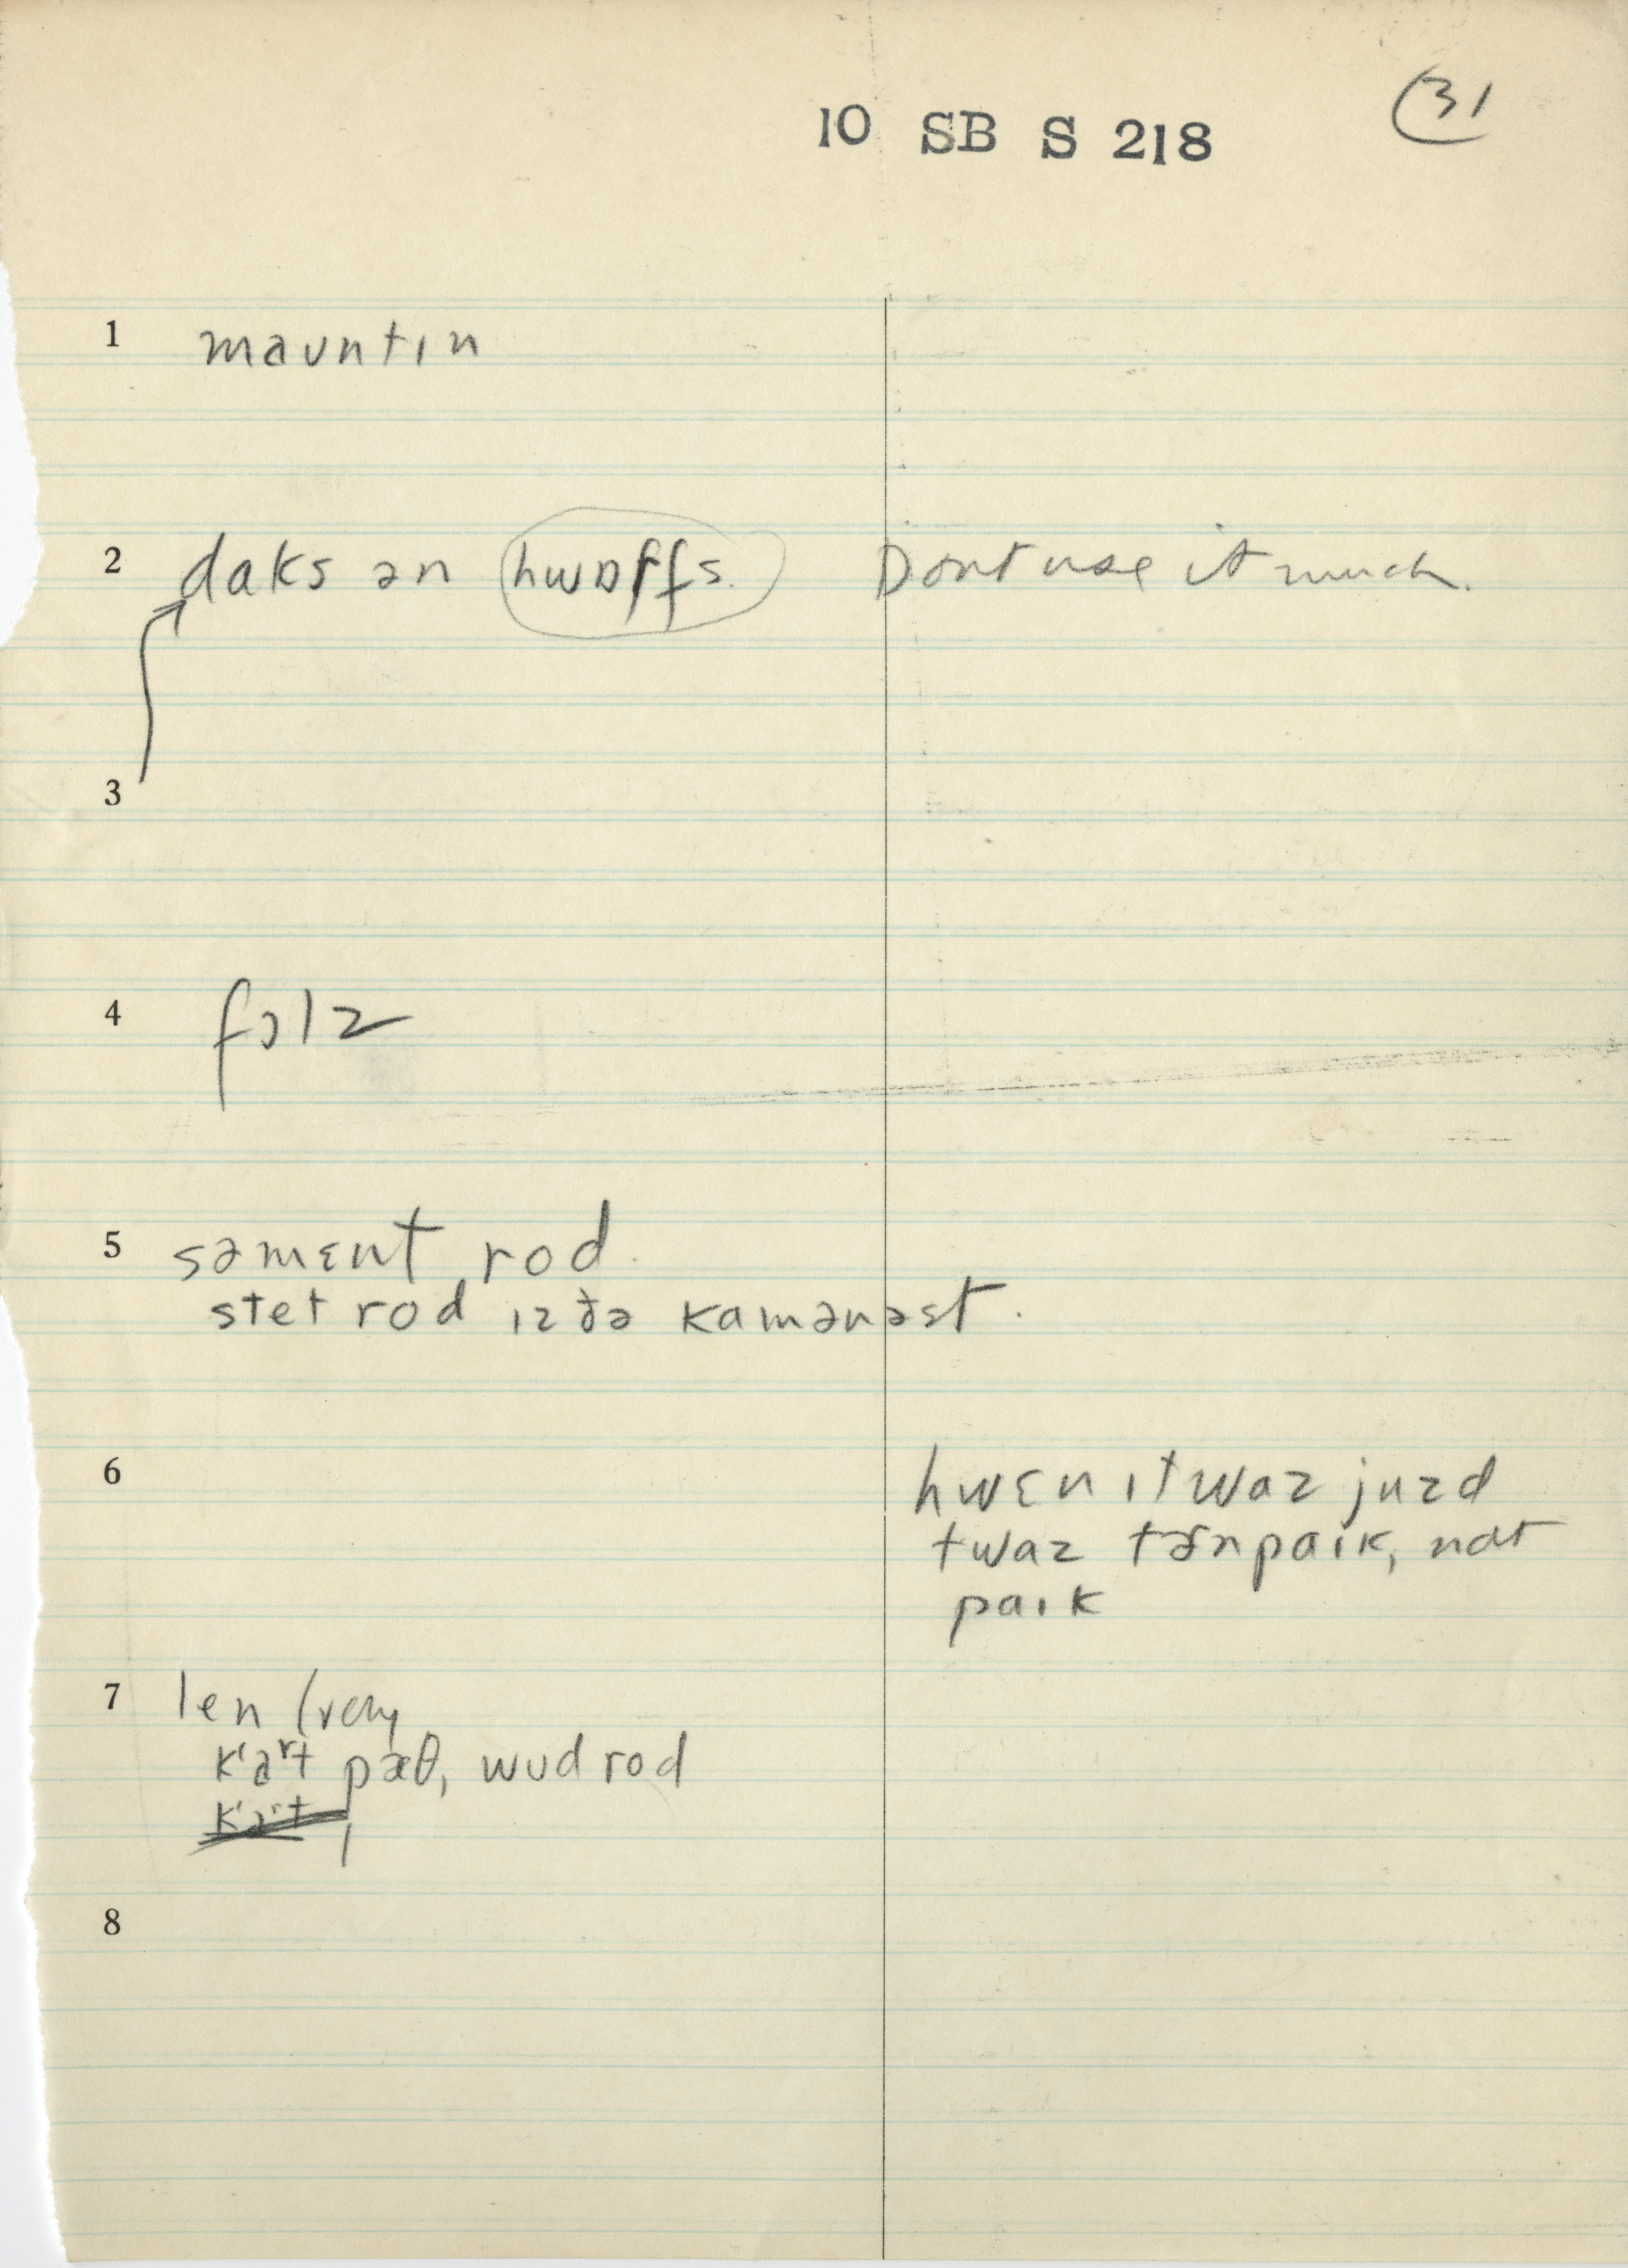 31
10 SB S 218
1 maʊntɪn
2 daks ən hwɒrfs. Dont use it much.
3
4 fɔlz
5 səmɛnt rod.
stet rod ɪz ðə kamənəst.
6 hwɛn ɪt waz juzd
twaz tɚnpaɪk, nat
paɪk
7 len (very
kaʳt pæθ, wʊd rod
kaʳt
8